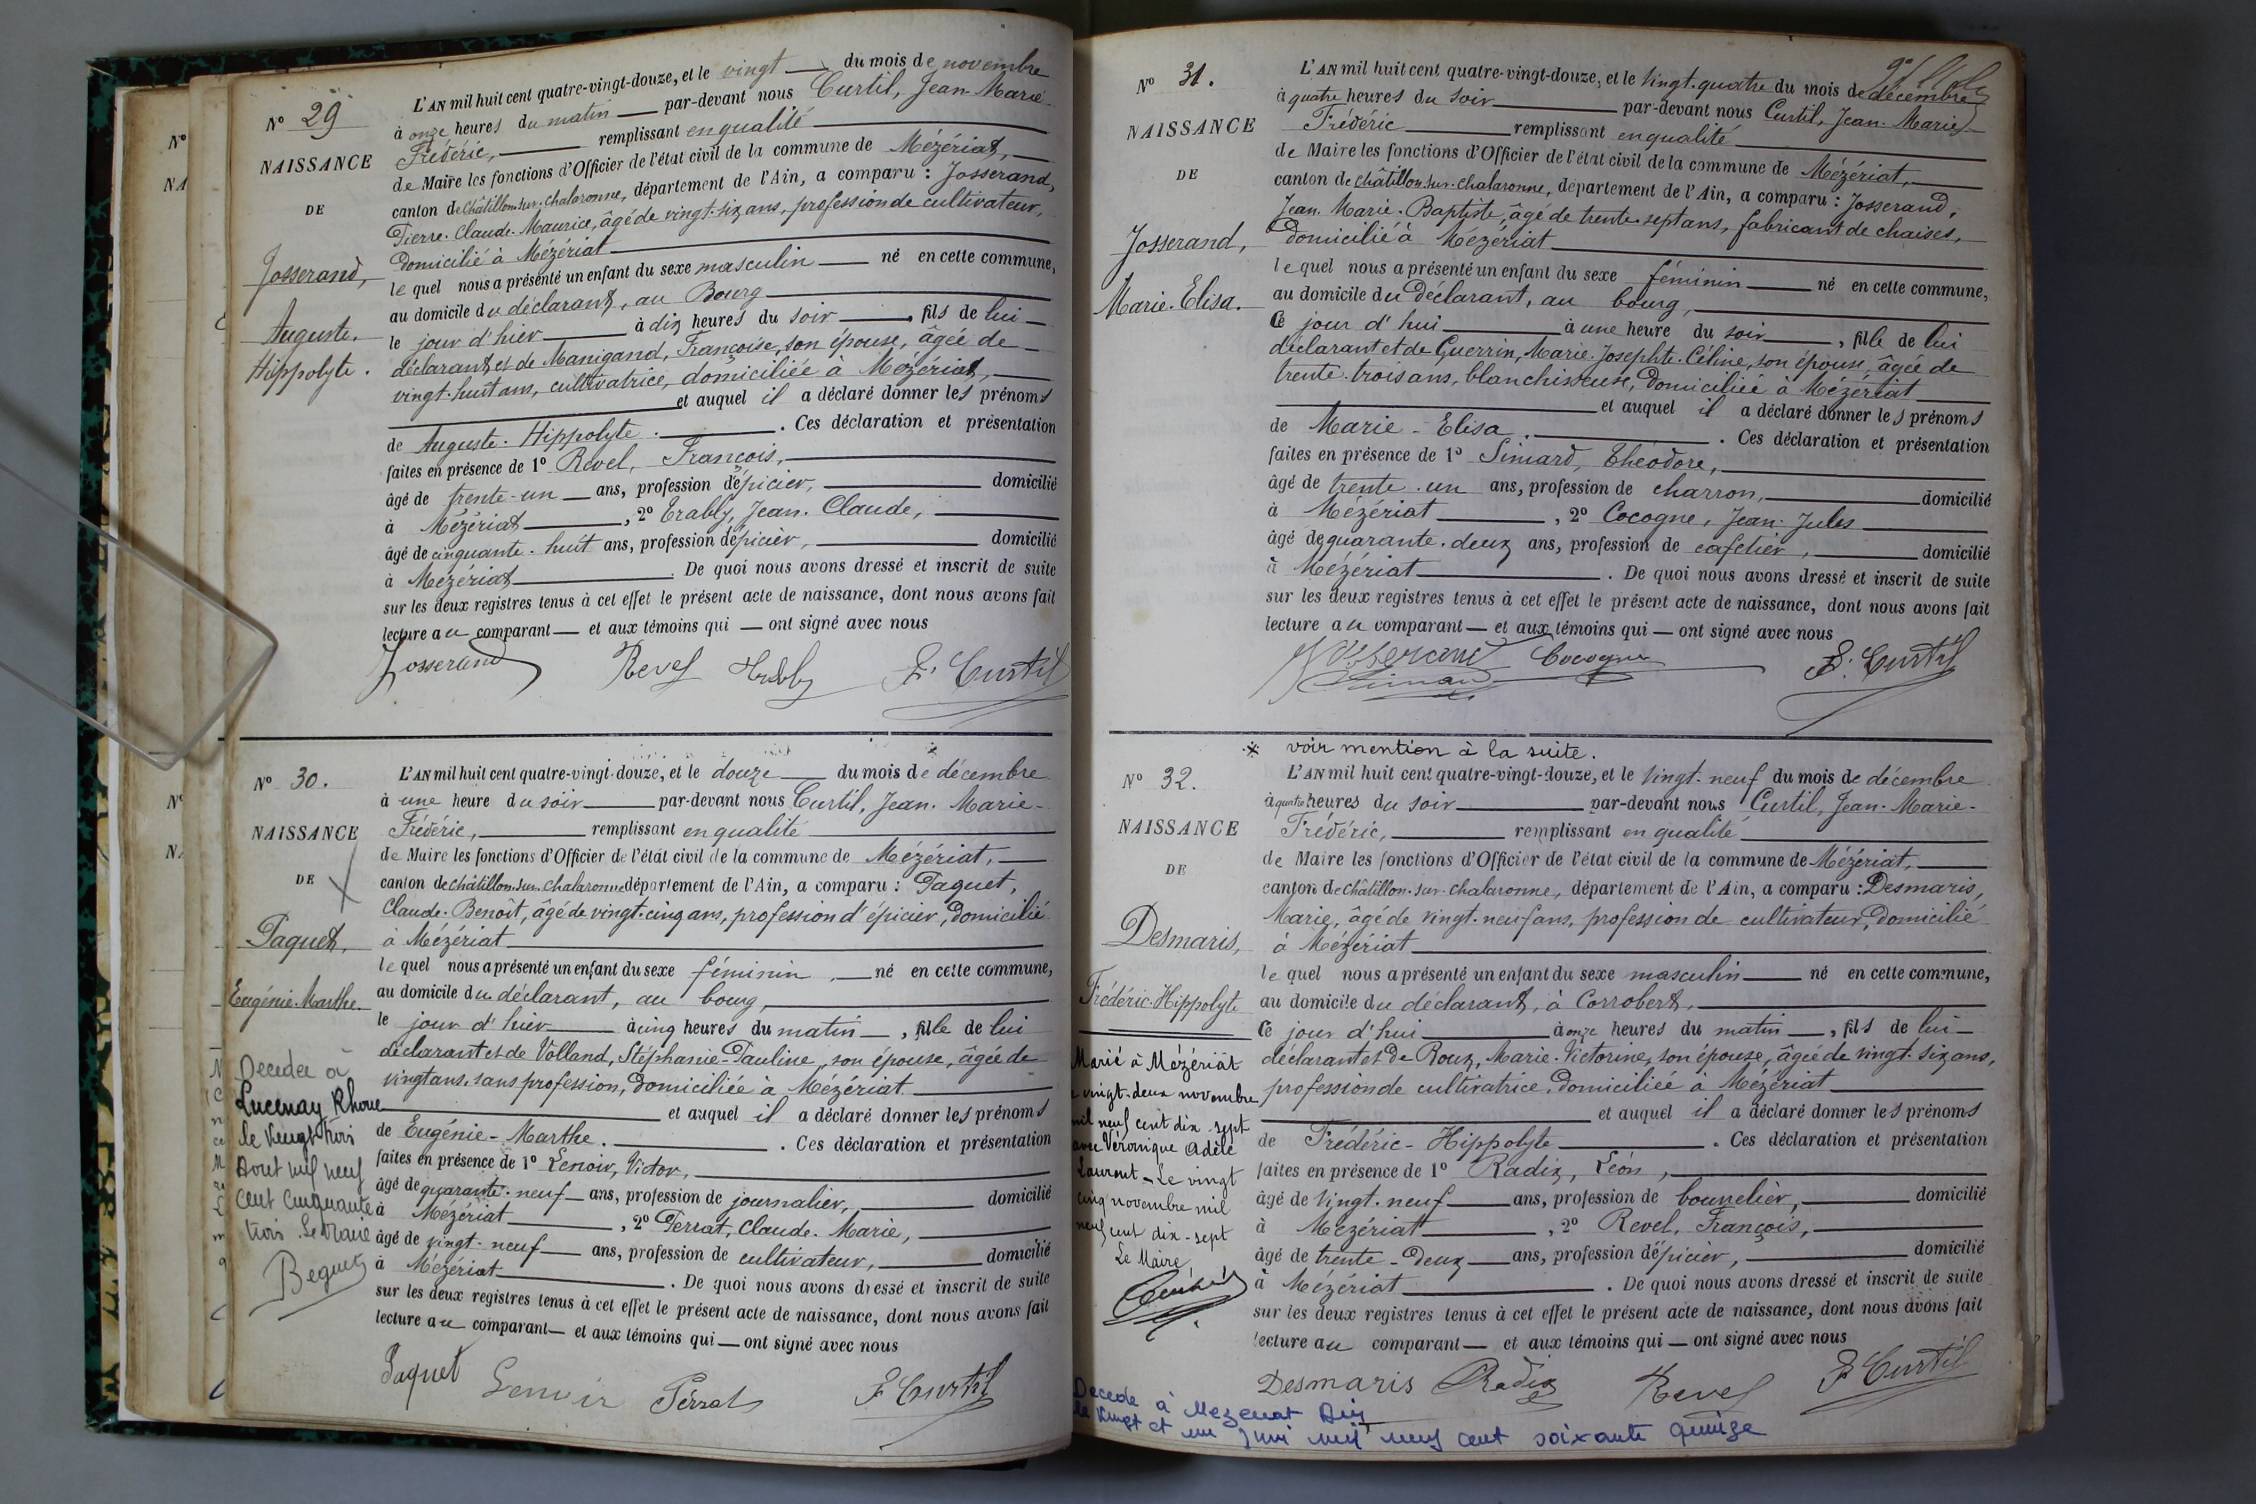 N° 29
NAISSANCE
DE
Josserand,
Auguste.
Hippolyte.
L'AN mil huit cent quatre-vingt-douze, et le vingt du mois de novembre
à onze heures du matin par-devant nous Curtil, Jean-Marie-
Frédéric, remplissant en qualité
de Maire les fonctions d'Officier de l'état civil de la commune de Mézériat,
canton de Châtillon-sur-Chalaronne, département de l'Ain, a comparu : Josserand,
Pierre-Claude-Maurice, âgé de vingt-six ans, profession de cultivateur,
domicilié à Mézériat
lequel nous a présenté un enfant du sexe masculin né en cette commune,
au domicile du déclarant, au Bourg
le jour d'hier à dix heures du soir, fils de lui
déclarant et de Manigand, Françoise, son épouse, âgée de
vingt-huit ans, cultivatrice, domiciliée à Mézériat,
et auquel il a déclaré donner les prénoms
de Auguste-Hippolyte. Ces déclaration et présentation
faites en présence de 1° Revel, François,
âgé de trente-un ans, profession d'épicier, domicilié
à Mézériat, 2° Erably, Jean-Claude,
âgé de cinquante-huit ans, profession d'épicier, domicilié
à Mézériat. De quoi nous avons dressé et inscrit de suite
sur les deux registres tenus à cet effet le présent acte de naissance, dont nous avons fait
lecture au comparant et aux témoins qui ont signé avec nous
Josserand Revel F. Curtil
N° 30.
NAISSANCE
DE
Paquet,
Eugénie-Marthe.
Décédée à
Lucenay Rhone
le vingt trois
Aout mil neuf
cent cinquante
trois. Le Maire
Beguet
L'AN mil huit cent quatre-vingt-douze, et le douze du mois de décembre
à une heure du soir par-devant nous Curtil, Jean-Marie-
Frédéric, remplissant en qualité
de Maire les fonctions d'Officier de l'état civil de la commune de Mézériat,
canton de Châtillon-sur-Chalaronne département de l'Ain, a comparu : Paquet,
Claude-Benoît, âgé de vingt-cinq ans, profession d'épicier, domicilié
à Mézériat
lequel nous a présenté un enfant du sexe féminin, né en cette commune,
au domicile du déclarant, au bourg,
le jour d'hier à cinq heures du matin, fille de lui
déclarant et de Volland, Stéphanie-Pauline, son épouse, âgée de
vingt ans, sans profession, domiciliée à Mézériat
et auquel il a déclaré donner les prénoms
de Eugénie-Marthe. Ces déclaration et présentation
faites en présence de 1° Lenoir, Victor,
âgé de quarante-neuf ans, profession de journalier, domicilié
à Mézériat, 2° Perrat, Claude-Marie,
âgé de vingt-neuf ans, profession de cultivateur, domicilié
à Mézériat. De quoi nous avons dressé et inscrit de suite
sur les deux registres tenus à cet effet le présent acte de naissance, dont nous avons fait
lecture au comparant et aux témoins qui ont signé avec nous
Paquet Lenoir Perrat F. Curtil
N° 31.
NAISSANCE
DE
Josserand,
Marie-Elisa.
L'AN mil huit cent quatre-vingt-douze, et le vingt-quatre du mois de décembre
à quatre heures du soir par-devant nous Curtil, Jean-Marie-
Frédéric remplissant en qualité
de Maire les fonctions d'Officier de l'état civil de la commune de Mézériat,
canton de Châtillon-sur-Chalaronne, département de l'Ain, a comparu : Josserand,
Jean-Marie-Baptiste, âgé de trente-sept ans, fabricant de chaises,
domicilié à Mézériat
lequel nous a présenté un enfant du sexe féminin né en cette commune,
au domicile du déclarant, au bourg,
Ce jour d'hui à une heure du soir, fille de lui
déclarant et de Guerrin, Marie-Josephte-Céline, son épouse, âgée de
trente-trois ans, blanchisseuse, domiciliée à Mézériat
et auquel il a déclaré donner les prénoms
de Marie-Elisa. Ces déclaration et présentation
faites en présence de 1° Simard, Théodore,
âgé de trente-un ans, profession de charron, domicilié
à Mézériat, 2° Cocogne, Jean-Jules
âgé de quarante-deux ans, profession de cafetier, domicilié
à Mézériat. De quoi nous avons dressé et inscrit de suite
sur les deux registres tenus à cet effet le présent acte de naissance, dont nous avons fait
lecture au comparant et aux témoins qui ont signé avec nous
Josserand Cocogne F. Curtil
Simard
※ voir mention à la suite.
N° 32.
NAISSANCE
DE
Desmaris,
Frédéric-Hippolyte
Marié à Mézériat
le vingt-deux novembre
mil neuf cent dix-sept
avec Véronique Adèle
Laurent - Le vingt
cinq novembre mil
neuf cent dix-sept
Le Maire,
L'AN mil huit cent quatre-vingt-douze, et le vingt-neuf du mois de décembre
à quatre heures du soir par-devant nous Curtil, Jean-Marie-
Frédéric, remplissant en qualité
de Maire les fonctions d'Officier de l'état civil de la commune de Mézériat,
canton de Châtillon-sur-Chalaronne, département de l'Ain, a comparu : Desmaris,
Marie, âgé de vingt-neuf ans, profession de cultivateur, domicilié
à Mézériat
lequel nous a présenté un enfant du sexe masculin né en cette commune,
au domicile du déclarant, à Corrobert,
Ce jour d'hui à onze heures du matin, fils de lui
déclarant et de Roux, Marie-Victorine, son épouse, âgée de vingt-six ans,
profession de cultivatrice, domiciliée à Mézériat
et auquel il a déclaré donner les prénoms
de Frédéric-Hippolyte. Ces déclaration et présentation
faites en présence de 1° Radix, Léon,
âgé de vingt-neuf ans, profession de bourrelier, domicilié
à Mézériat, 2° Revel, François,
âgé de trente-deux ans, profession d'épicier, domicilié
à Mézériat. De quoi nous avons dressé et inscrit de suite
sur les deux registres tenus à cet effet le présent acte de naissance, dont nous avons fait
lecture au comparant et aux témoins qui ont signé avec nous
Desmaris Radix Revel F. Curtil
Décédé à Mezeriat Ain
le vingt et un Juin mil neuf cent soixante quinze